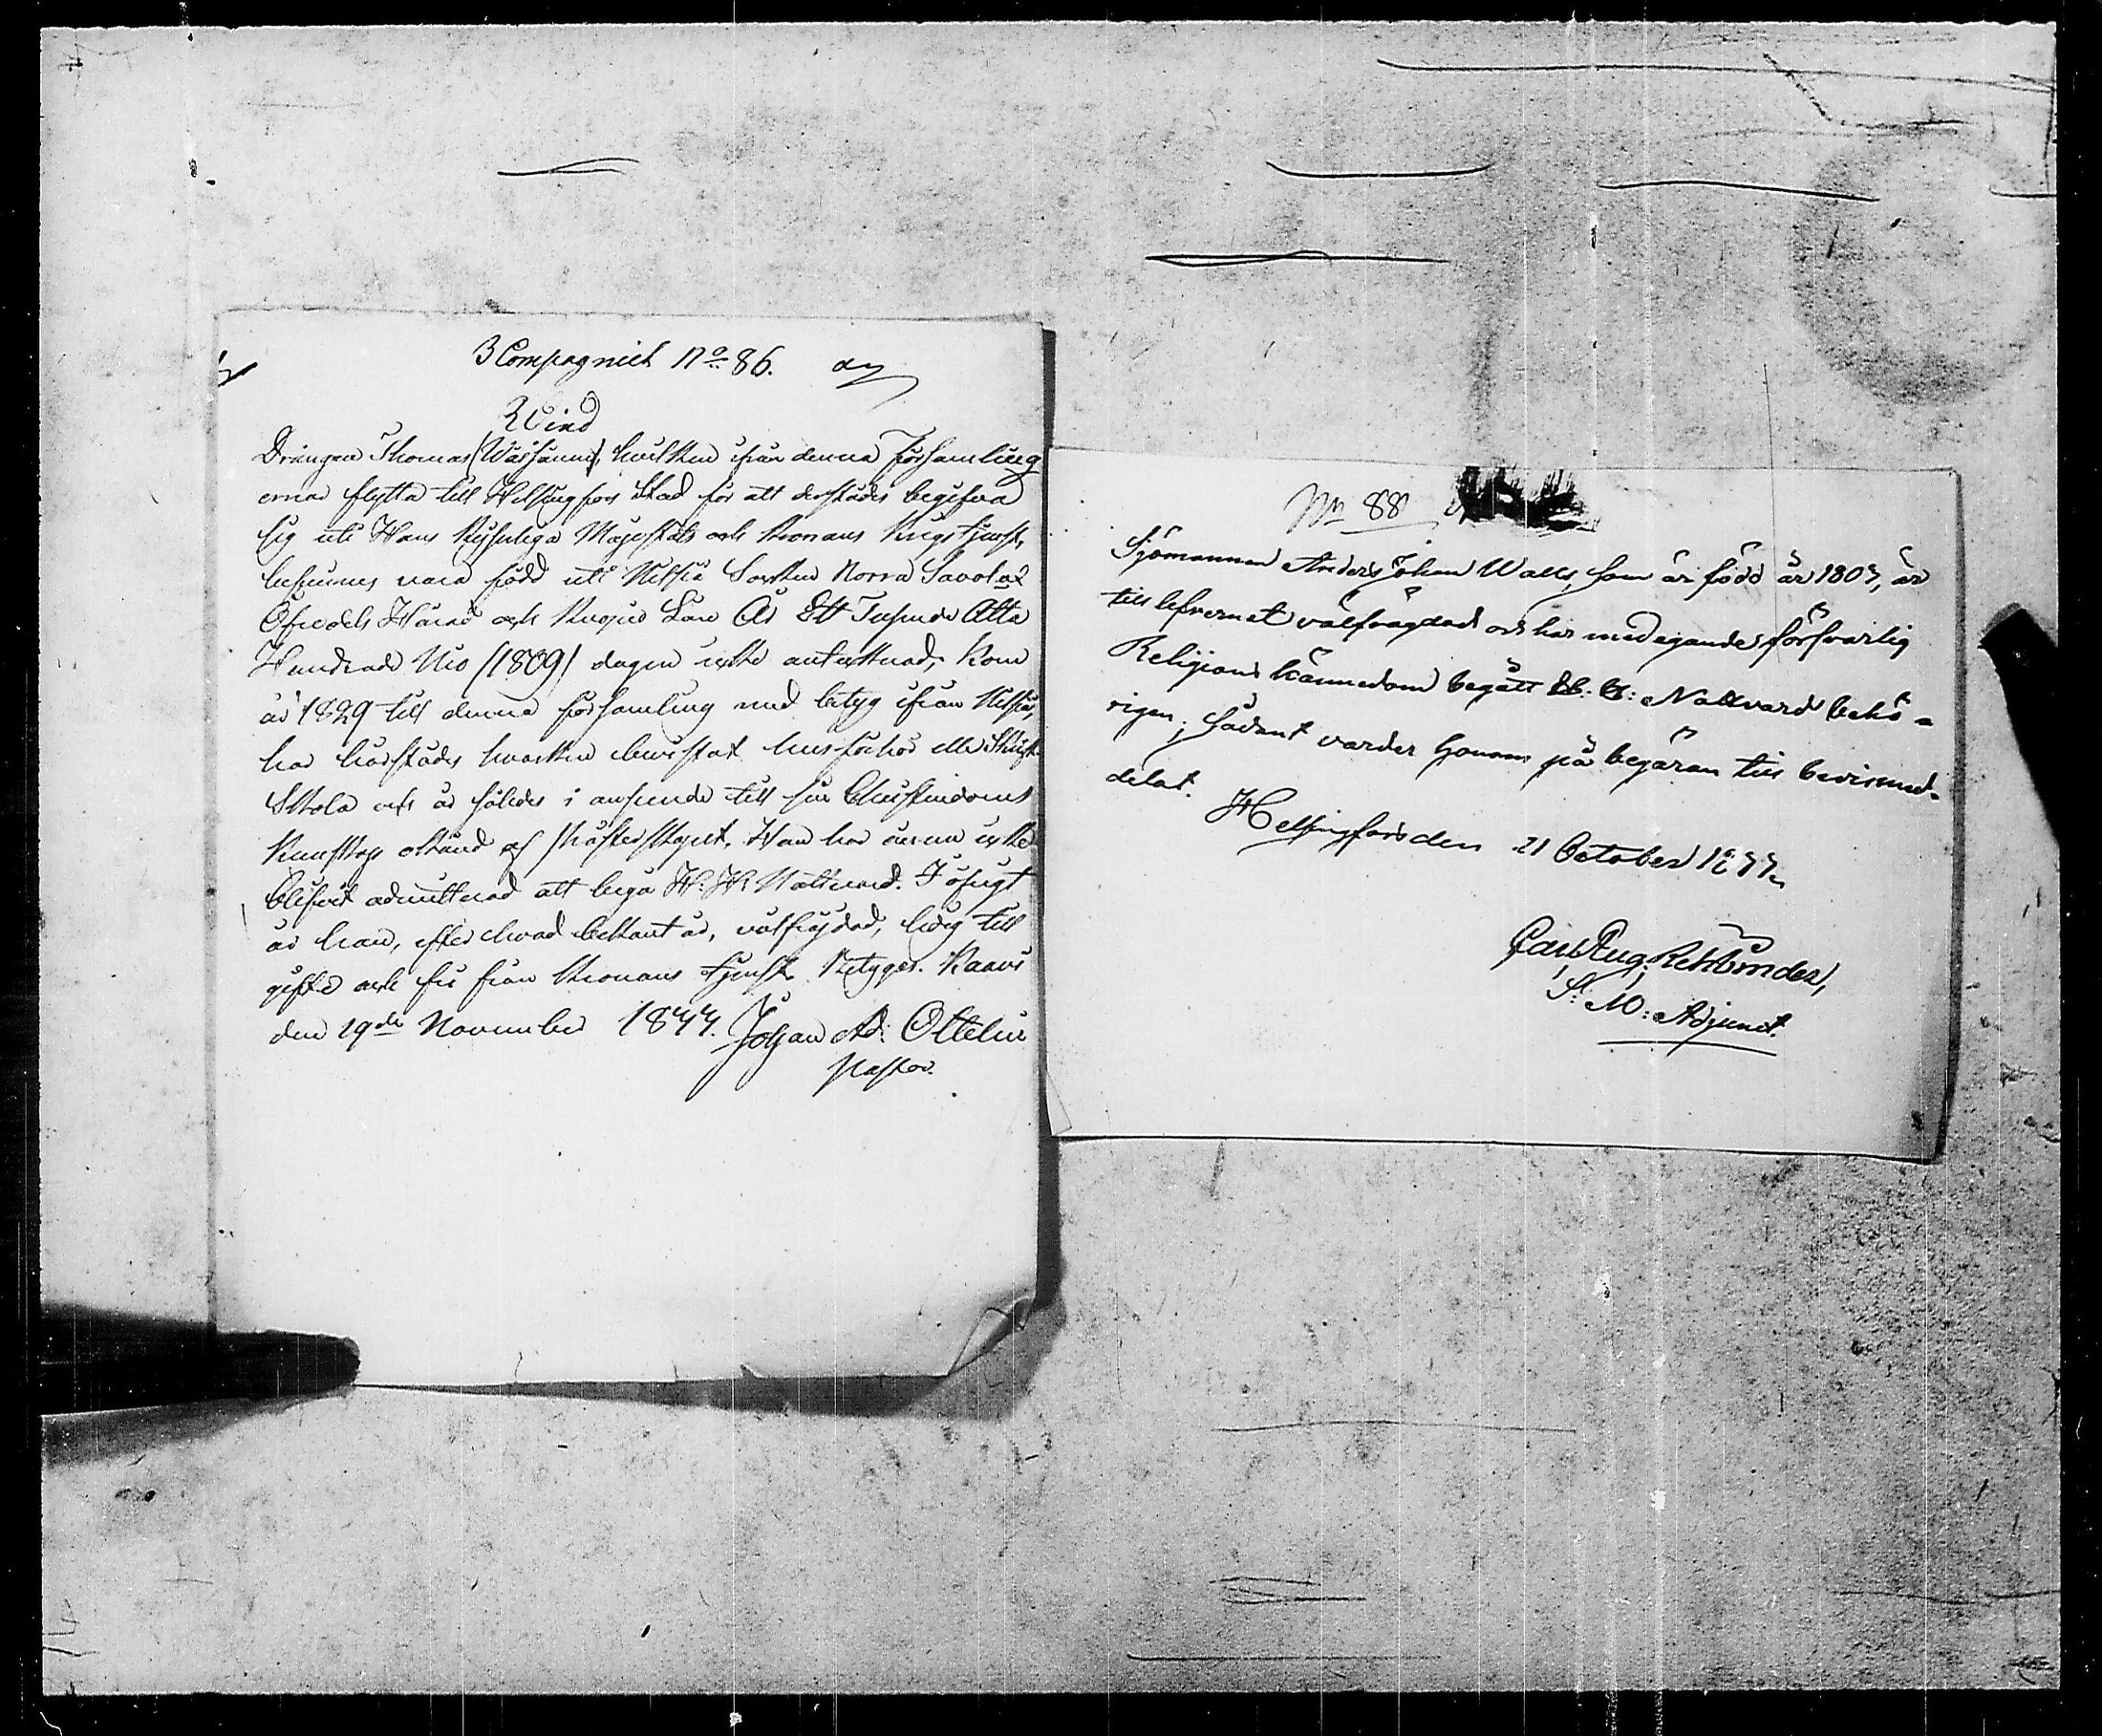 3 Compagniet No 86.
Wind
Drängen Thomas (Wäisänen), hvilken ifrån denna Församling
ernar flytta till Helsingfors Stad för att derstädes begifva
sig uti Hans Kejserliga Majestäts och Kronans Krigstjenst,
befinnes vara född uti Nilsiä Socken Norra Savolax
Öfredels Härad och Kuopio Län År Ett Tusende Åtta
Hundrade Nio (1809) dagen icke antecknad, kom
år 1829 till denna församling med betyg ifrån Nilsiä,
har härstädes hvarken bevistat husförhör eller Skrift
Skola och är således i anseende till sin Christendoms
Kunskap okänd af Prästerskapet. Han har ännu icke
blifvit admitterad att begå H. H. Nattvard. I öfrigt
är han, efter hvad bekant är, välfräjdad, ledig till
gifte och fri från Kronans tjenst betygar. Kaavi
den 19de November 1844. Johan Ad: Ottelin
Pastor.
No 88
Sjömannen Anders Johan Walls, som är född år 1807, är
till lefvernet välfrägdad och har med egande försvarlig
Religions kännedom begått H. H: Nattvard behö-
rigen; sådant varder honom på begäran till bevis med-
delat.
Helsingfors den 21 October 1844.
Carl Aug:
S. M: Adjunct.